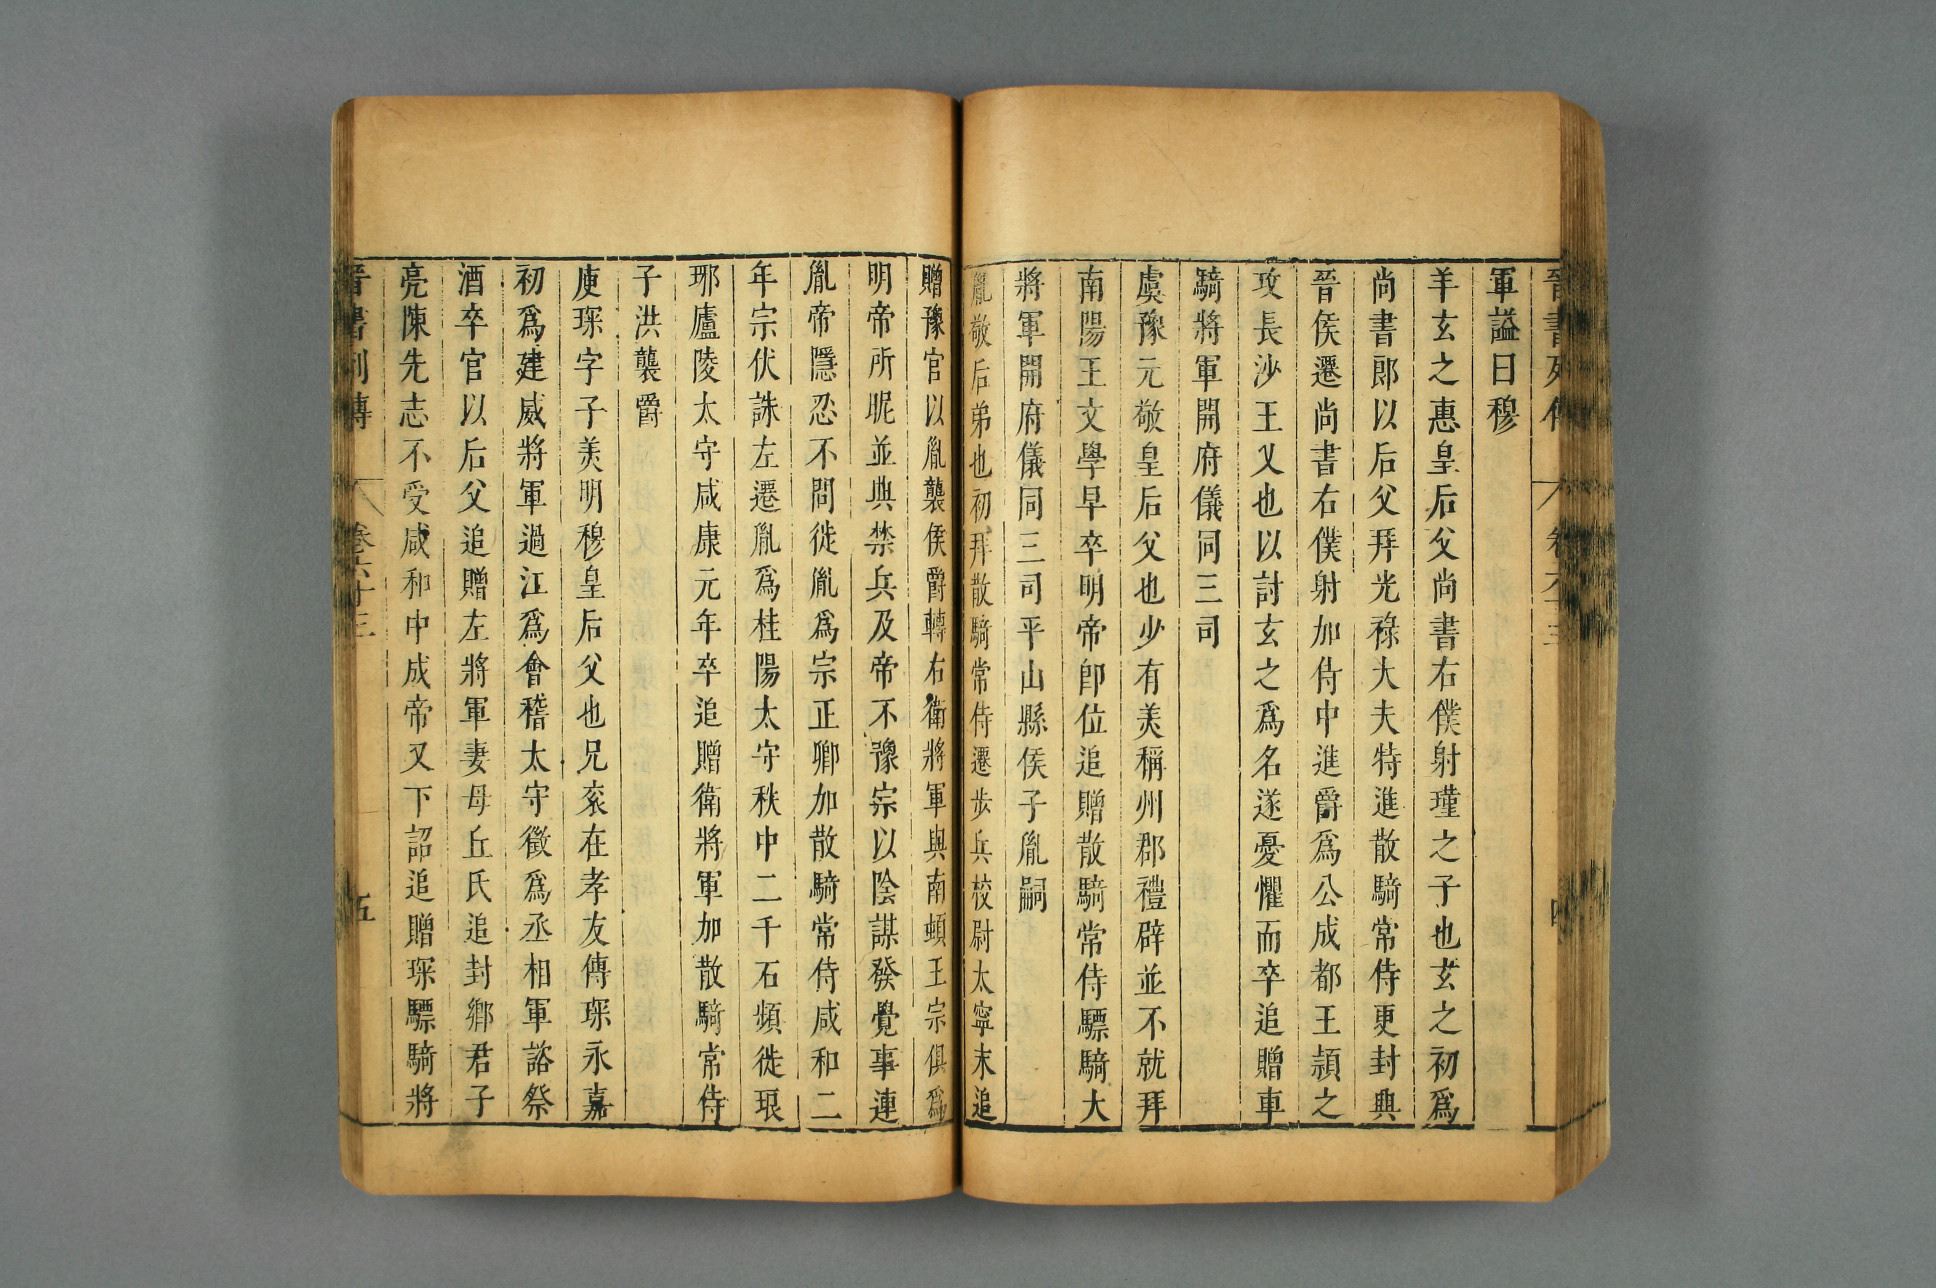 晉書列傳 卷六十三 四
軍謚曰穆
羊玄之惠皇后父尚書右僕射瑾之子也玄之初爲
尚書郎以后父拜光祿大夫特進散騎常侍更封興
晉侯遷尚書右僕射加侍中進爵爲公成都王頴之
攻長沙王乂也以討玄之爲名遂憂懼而卒追贈車
騎將軍開府儀同三司
虞豫元敬皇后父也少有美稱州郡禮辟並不就拜
南陽王文學早卒明帝卽位追贈散騎常侍驃騎大
將軍開府儀同三司平山縣侯子胤嗣
胤敬后弟也初拜散騎常侍遷步兵校尉太寧末追
贈豫官以胤襲侯爵轉右衛將軍與南頓王宗俱爲
明帝所昵並典禁兵及帝不豫宗以陰謀發覺事連
胤帝隱忍不問徙胤爲宗正卿加散騎常侍咸和二
年宗伏誅左遷胤爲桂陽太守秩中二千石頻徙琅
琊廬陵太守咸康元年卒追贈衛將軍加散騎常侍
子洪襲爵
庾琛字子美明穆皇后父也兄衮在孝友傳琛永嘉
初爲建威將軍過江爲會稽太守徵爲丞相軍諮祭
酒卒官以后父追贈左將軍妻毋丘氏追封鄉君子
亮陳先志不受咸和中成帝又下詔追贈琛驃騎將
晉書列傳 卷六十三 五